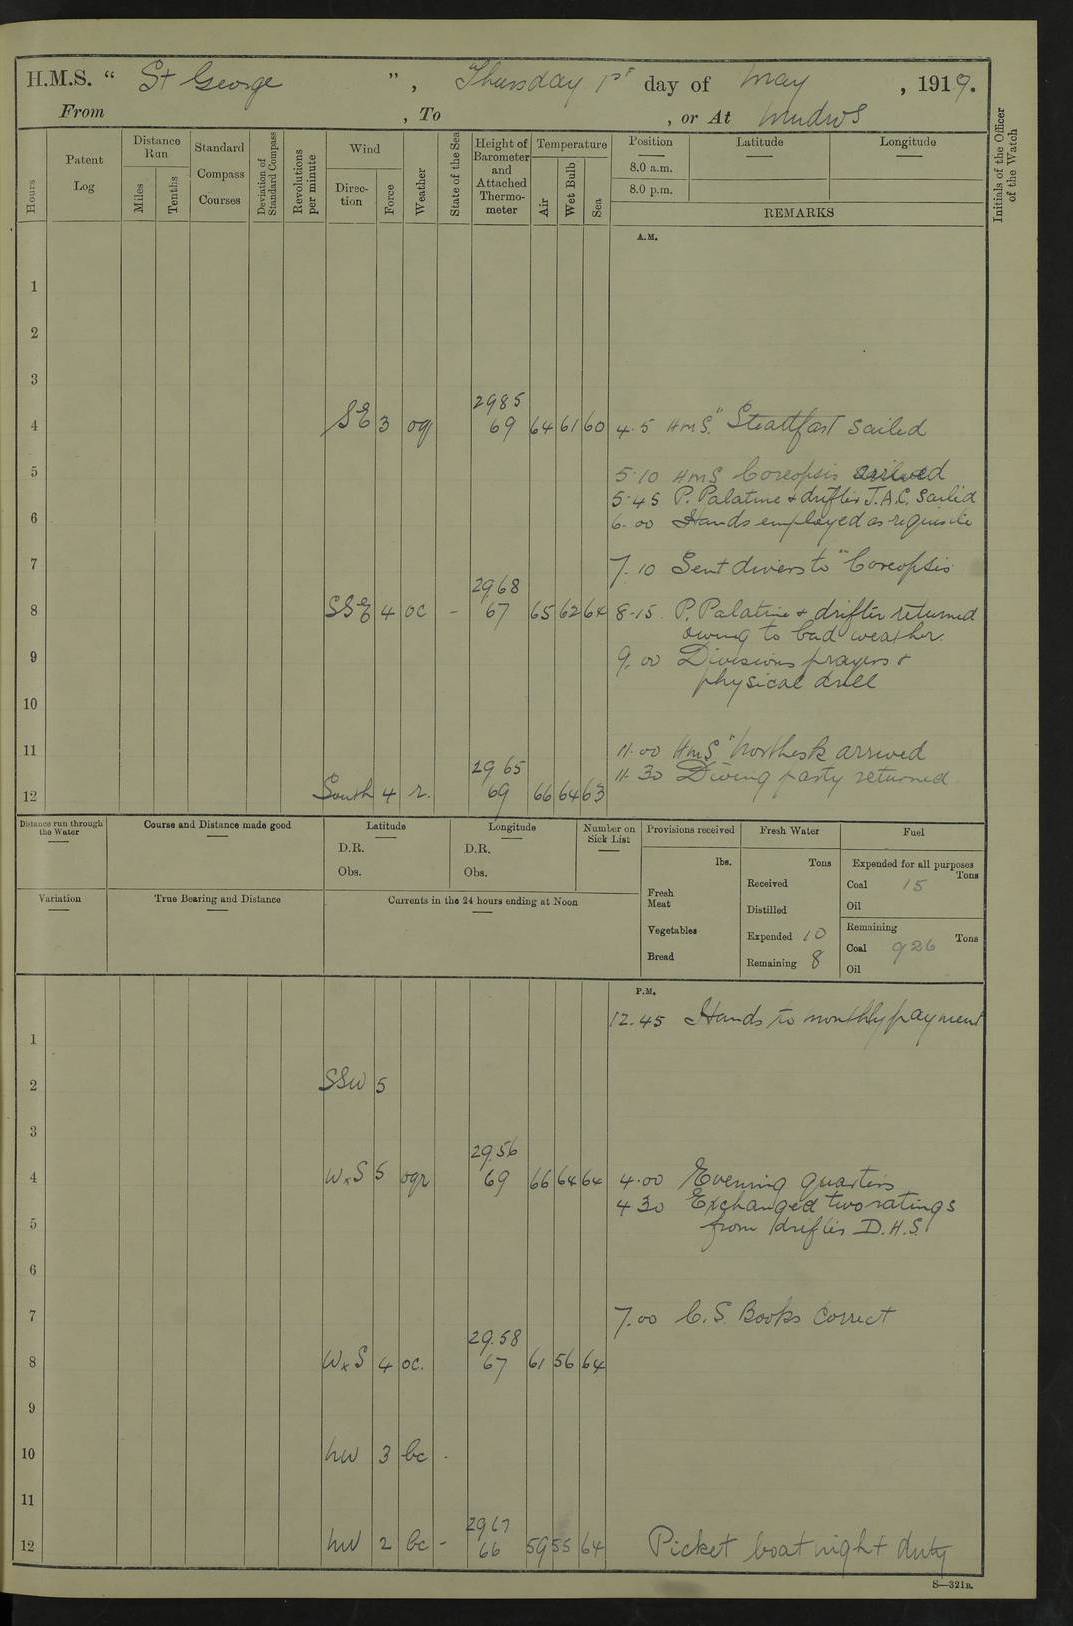 H.M.S. “ St George ” , Thursday 1st day of May , 1919.
From , To , or At Mudros
Hours
Patent Log
Distance Run
Miles
Tenths
Standard Compass Courses
Deviation of Standard Compass
Revolutions per minute
Wind
Direc-tion
Force
Weather
State of the Sea
Height of Barometer and Attached Thermo-meter
Temperature
Air
Wet Bulb
Sea
Position Latitude Longitude
8.0 a.m.
8.0 p.m.
REMARKS
Initials of the Officer of the Watch
A.M.
1
2
3
2985
4 SE 3 og 69 64 61 60 4.5 HMS "Steadfast sailed
5 5.10 HMS Coreopsis arrived
5.45 P. Palatine & drifter J.A.C. sailed
6 6.00 Hands employed as requisite
7 7.10 Sent divers to "Coreopsis
2968
8 SSE 4 oc - 67 65 62 64 8.15 P. Palatine & drifter returned
owing to bad weather.
9 9.00 Divisions prayers &
physical drill
10
11 11.00 HMS "Northesk arrived
2965
11.30 Diving party returned
12 South 4 r. 69 66 64 63
Distance run through the Water
Course and Distance made good
Latitude
D.R.
Obs.
Longitude
D.R.
Obs.
Number on Sick List
Provisions received
lbs.
Fresh Meat
Vegetables
Bread
Fresh Water
Tons
Received
Distilled
Expended 10
Remaining 8
Fuel
Expended for all purposes
Tons
Coal 15
Oil
Remaining
Tons
Coal 926
Oil
Variation
True Bearing and Distance
Currents in the 24 hours ending at Noon
P.M.
12.45 Hands to monthly payment
1
2 SSW 5
3
29.56
4 WxS 5 ogr 69 66 64 64 4.00 Evening quarters
4 30 Exchanged two ratings
5 from drifter D.H.S.
6
7 7.00 C.S. Books correct
29.58
8 WxS 4 oc. 67 61 56 64
9
10 NW 3 bc -
11
2967
12 NW 2 bc - 66 59 55 64 Picket boat night duty
S—321B.